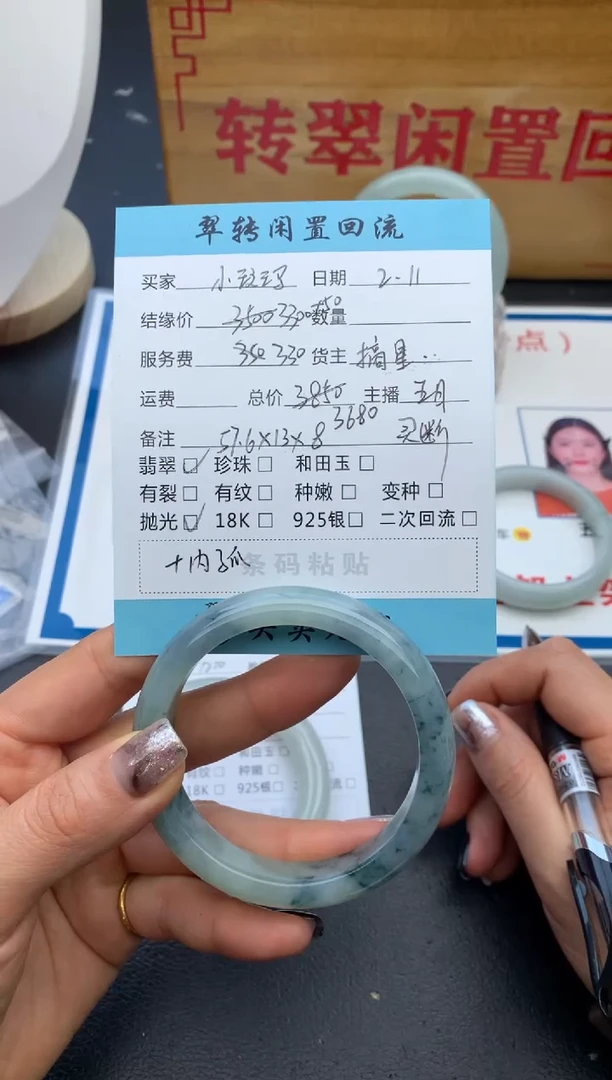 转翠闲置回
翠转闲置回流
买家 小 日期 2-11
结缘价 3500 3300 数量
服务费 350 330 货主 摘星..
运费 总价 3850 主播 五月
3680
备注 57.6×13×8 买断
翡翠☑ 珍珠□ 和田玉□
有裂□ 有纹□ 种嫩□ 变种□
抛光☑ 18K□ 925银□ 二次回流□
+内弧 条码粘贴
点）
和田玉□
有纹□ 种嫩□
18K□ 925银□ 流□